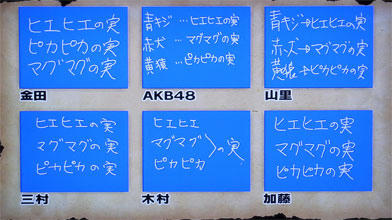 ヒエヒエの実
ピカピカの実
マグマグの実
金田
青キジ…ヒエヒエの実
赤犬…マグマグの実
黄猿…ピカピカの実
AKB48
青キジ→ヒエヒエの実
赤犬→マグマグの実
黄猿→ピカピカの実
山里
ヒエヒエの実
マグマグの実
ピカピカの実
三村
ヒエヒエ
マグマグ 〉の実
ピカピカ
木村
ヒエヒエの実
マグマグの実
ピカピカの実
加藤